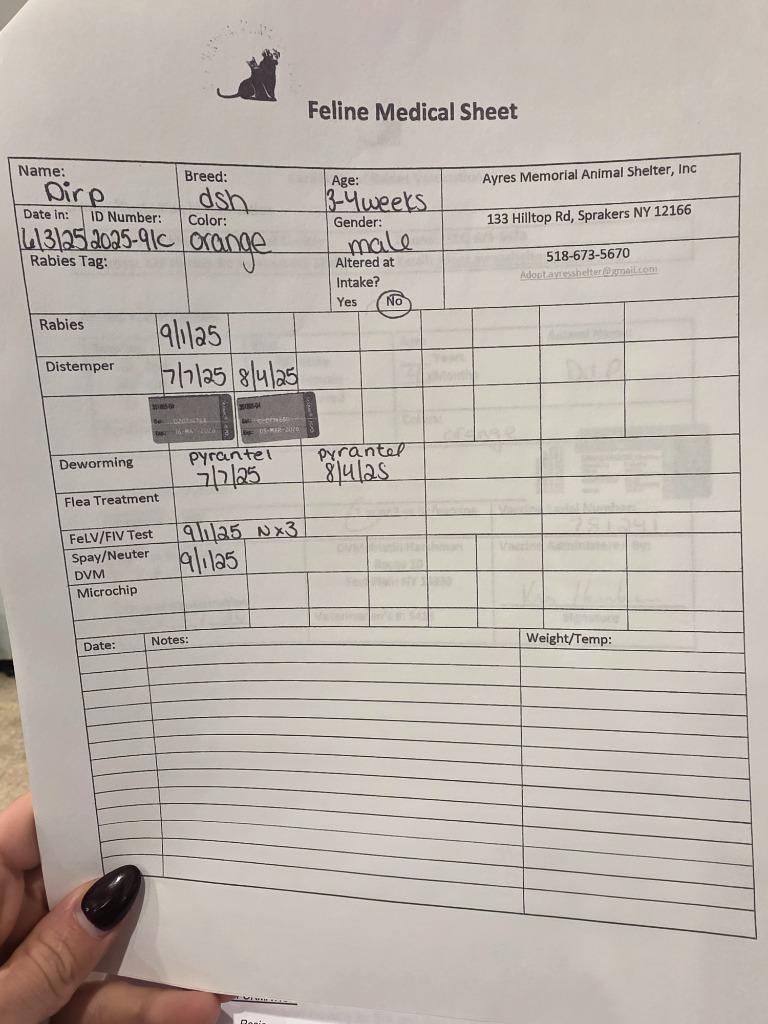 Feline Medical Sheet
Name: Dirp
Breed: dsh
Age: 3-4weeks
Ayres Memorial Animal Shelter, Inc
Date in: 6/3/25
ID Number: 2025-91C
Color: orange
Gender: male
133 Hilltop Rd, Sprakers NY 12166
Rabies Tag:
Altered at
Intake?
Yes No
518-673-5670
Adopt.ayresshelter@gmail.com
Rabies 9/1/25
Distemper 7/7/25 8/4/25
Deworming pyrantel 7/7/25 pyrantel 8/4/25
Flea Treatment
FeLV/FIV Test 9/1/25 N x 3
Spay/Neuter
DVM 9/1/25
Microchip
Date: Notes: Weight/Temp: